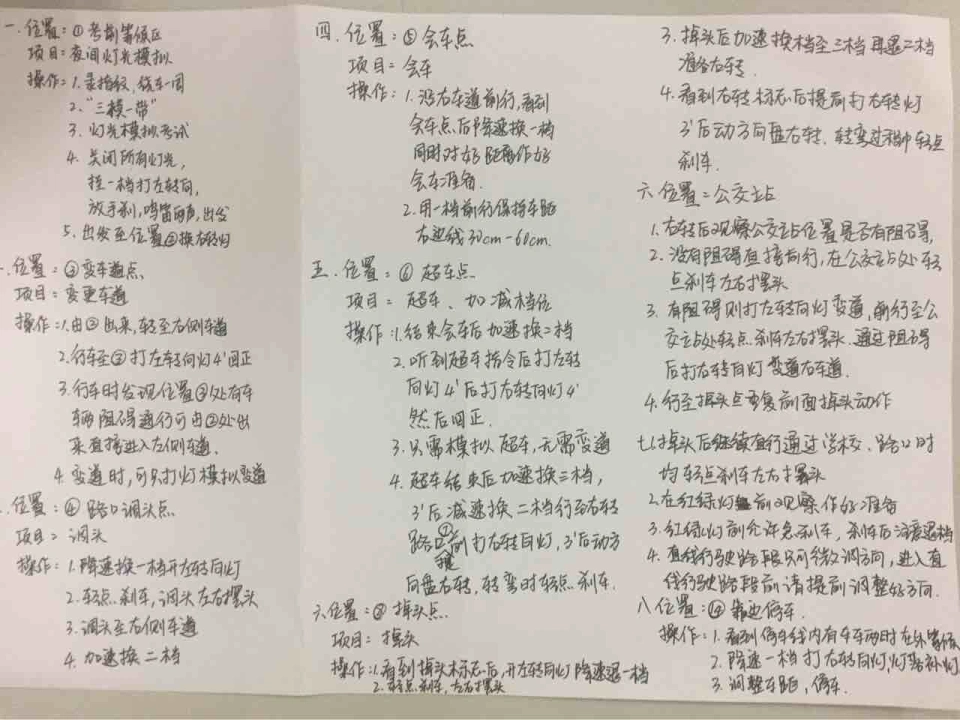 一.位置:①考前等候区
项目:夜间灯光模拟
操作:1.录指纹,绕车一周
2."三模一带"
3.灯光模拟考试
4.关闭所有灯光,
挂一档打左转向,
放手刹,鸣笛两声,出发
5.出发至位置②换右转灯
位置:③变车道点
项目:变更车道
操作:1.由②出来,转至右侧车道
2.行车至③打左转向灯4'回正
3.行车时发现位置③处有车
辆阻碍通行可由②处出
来直接进入左侧车道.
4.变道时,可只打灯模拟变道
位置:④路口调头点
项目=调头
操作:1.降速换一档开左转向灯
2.轻点刹车,调头左右摆头
3.调头至右侧车道
4.加速换二档
四.位置:⑤会车点
项目=会车
操作:1.沿右车道前行,看到
会车点后降速换一档
同时对好距离作好
会车准备.
2.用一档前行保持车距
右边线30cm-60cm.
五.位置:⑥超车点
项目=超车、加减档位
操作:1.结束会车后加速换二档
2.听到超车指令后打左转
向灯4'后打右转向灯4'
然后回正.
3.只需模拟超车,无需变道
4.超车结束后加速换三档,
3'后减速换二档行至右转
路口⑦前打右转向灯,3'后动方
向盘右转,转弯时轻点刹车.
六位置:⑧掉头点
项目:掉头
操作:1.看到掉头标志后,开左转向灯降速退一档
2.轻点刹车,左右摆头
3.掉头后加速换档至三档再退二档
准备右转.
4.看到右转标志后提前打右转灯
3'后动方向盘右转.转弯过程中轻点
刹车.
六位置=公交站
1.右转后观察公交站位置是否有阻碍,
2.没有阻碍直接前行,在公交站处轻
点刹车左右摆头
3.有阻碍则打左转向灯变道,前行至公
交站处轻点刹车左右摆头.通过阻碍
后打右转向灯变道右车道.
4.行至掉头点重复前面掉头动作
七1.掉头后继续直行通过学校、路口时
均轻点刹车左右摆头
2.在红绿灯前观察作好准备
3.红绿灯前允许急刹车,刹车后注意退档
4.直线行驶路段只可微调方向,进入直
线行驶路段前请提前调整好方向.
八位置:靠边停车.
操作:1.看到停车线内有车车辆时在外等候
2.降速一档打右转向灯,灯熄补灯
3.调整车距,停车.